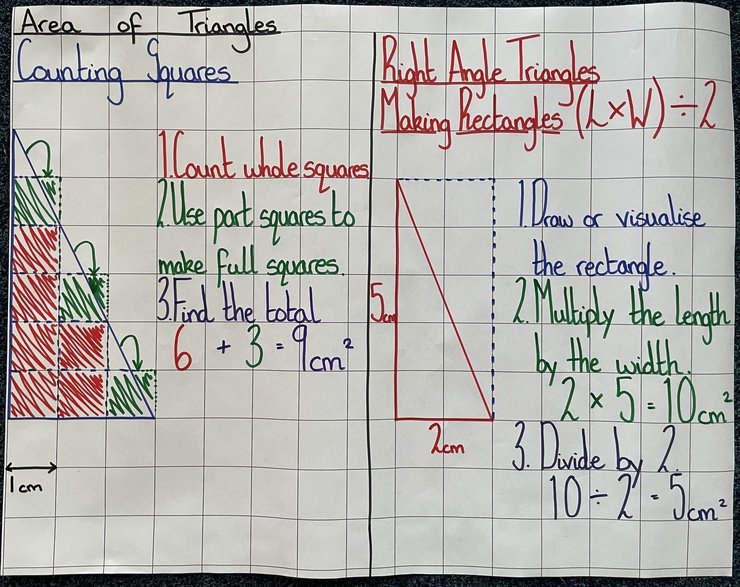 Area of Triangles
Counting Squares
1.Count whole squares
2.Use part squares to
make full squares.
3.Find the total
6 + 3 = 9cm²
1cm
Right Angle Triangles
Making Rectangles (L×W)÷2
5cm
2cm
1.Draw or visualise
the rectangle.
2.Multiply the length
by the width.
2 × 5 = 10cm²
3. Divide by 2.
10 ÷ 2 = 5cm²